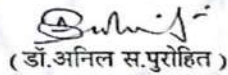 ( डॉ.अनिल स.पुरोहित )